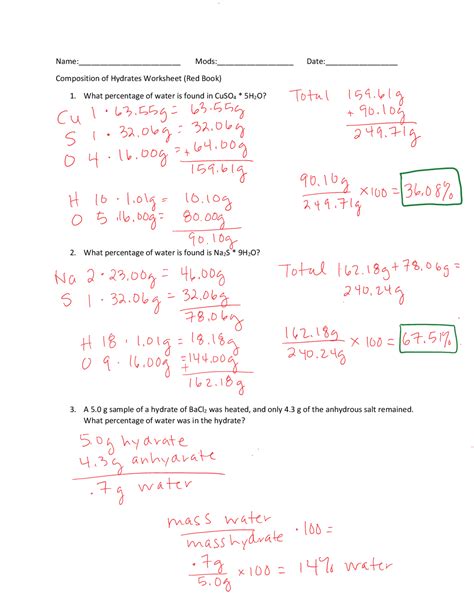 Name:________________________ Mods:__________________ Date:_________________
Composition of Hydrates Worksheet (Red Book)
1. What percentage of water is found in CuSO₄ * 5H₂O?
Cu 1 · 63.55g = 63.55g
S 1 · 32.06g = 32.06g
O 4 · 16.00g = +64.00g
159.61g
H 10 · 1.01g = 10.10g
O 5 · 16.00g = 80.00g
90.10g
Total 159.61g
+ 90.10g
249.71g
90.10g
249.71g
x100 = 36.08%
2. What percentage of water is found is Na₂S * 9H₂O?
Na 2 · 23.00g = 46.00g
S 1 · 32.06g = 32.06g
78.06g
H 18 · 1.01g = 18.18g
O 9 · 16.00g = +144.00g
162.18g
Total 162.18g + 78.06g =
240.24g
162.18g
240.24g
x 100 = 67.51%
3. A 5.0 g sample of a hydrate of BaCl₂ was heated, and only 4.3 g of the anhydrous salt remained.
What percentage of water was in the hydrate?
5.0g hydrate
4.3g anhydrate
.7g water
mass water
mass hydrate
· 100 =
.7g
5.0g
x100 = 14% water